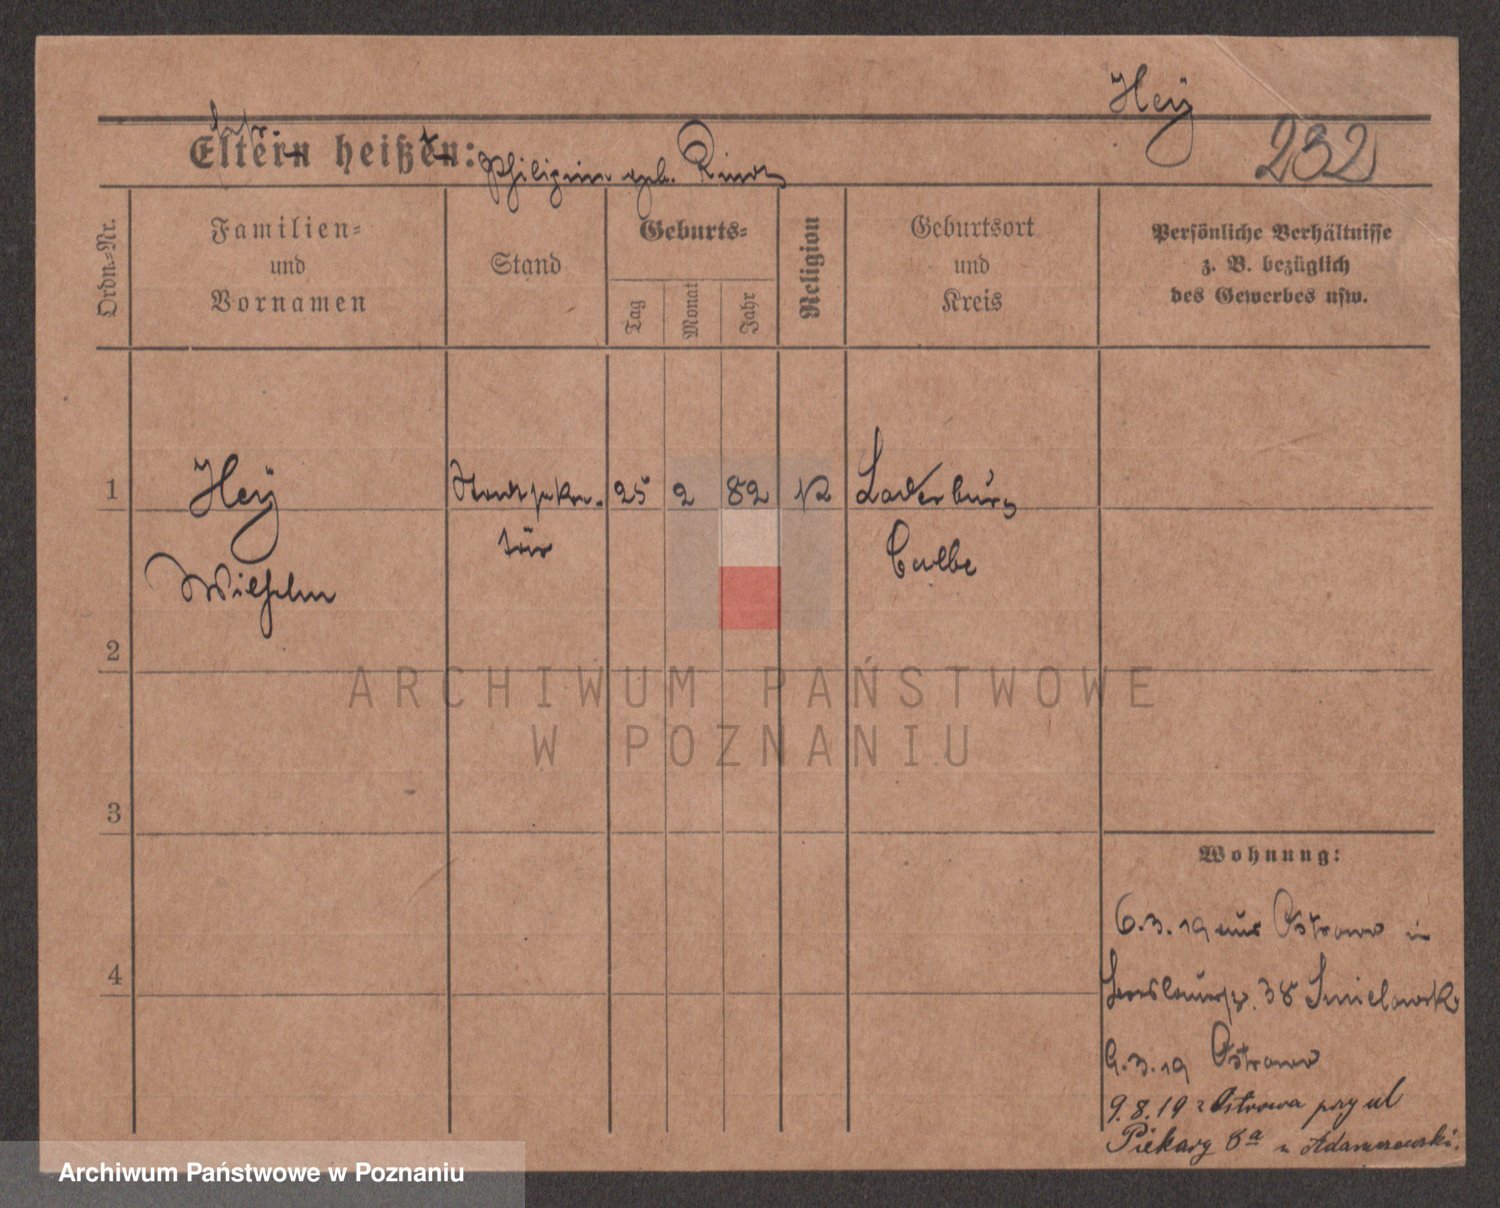 Hey
232
Eltern heißen:
Philippin geb.
Ordn.-Nr.
Familien-
und
Vornamen
Stand
Geburts-
Tag
Monat
Jahr
Religion
Geburtsort
und
Kreis
Persönliche Verhältnisse
z. B. bezüglich
des Gewerbes usw.
1
Hey
Stadtsekre-
25 2 82
tär
Wilhelm
Calbe
2
ARCHIWUM PAŃSTWOWE
W POZNANIU
3
Wohnung:
6.3.19 aus Ostrowo in
38
4
9.3.19 Ostrowo
9.8.19 z Ostrowa przy ul
Piekary 8a u Adamczewski.
Archiwum Państwowe w Poznaniu